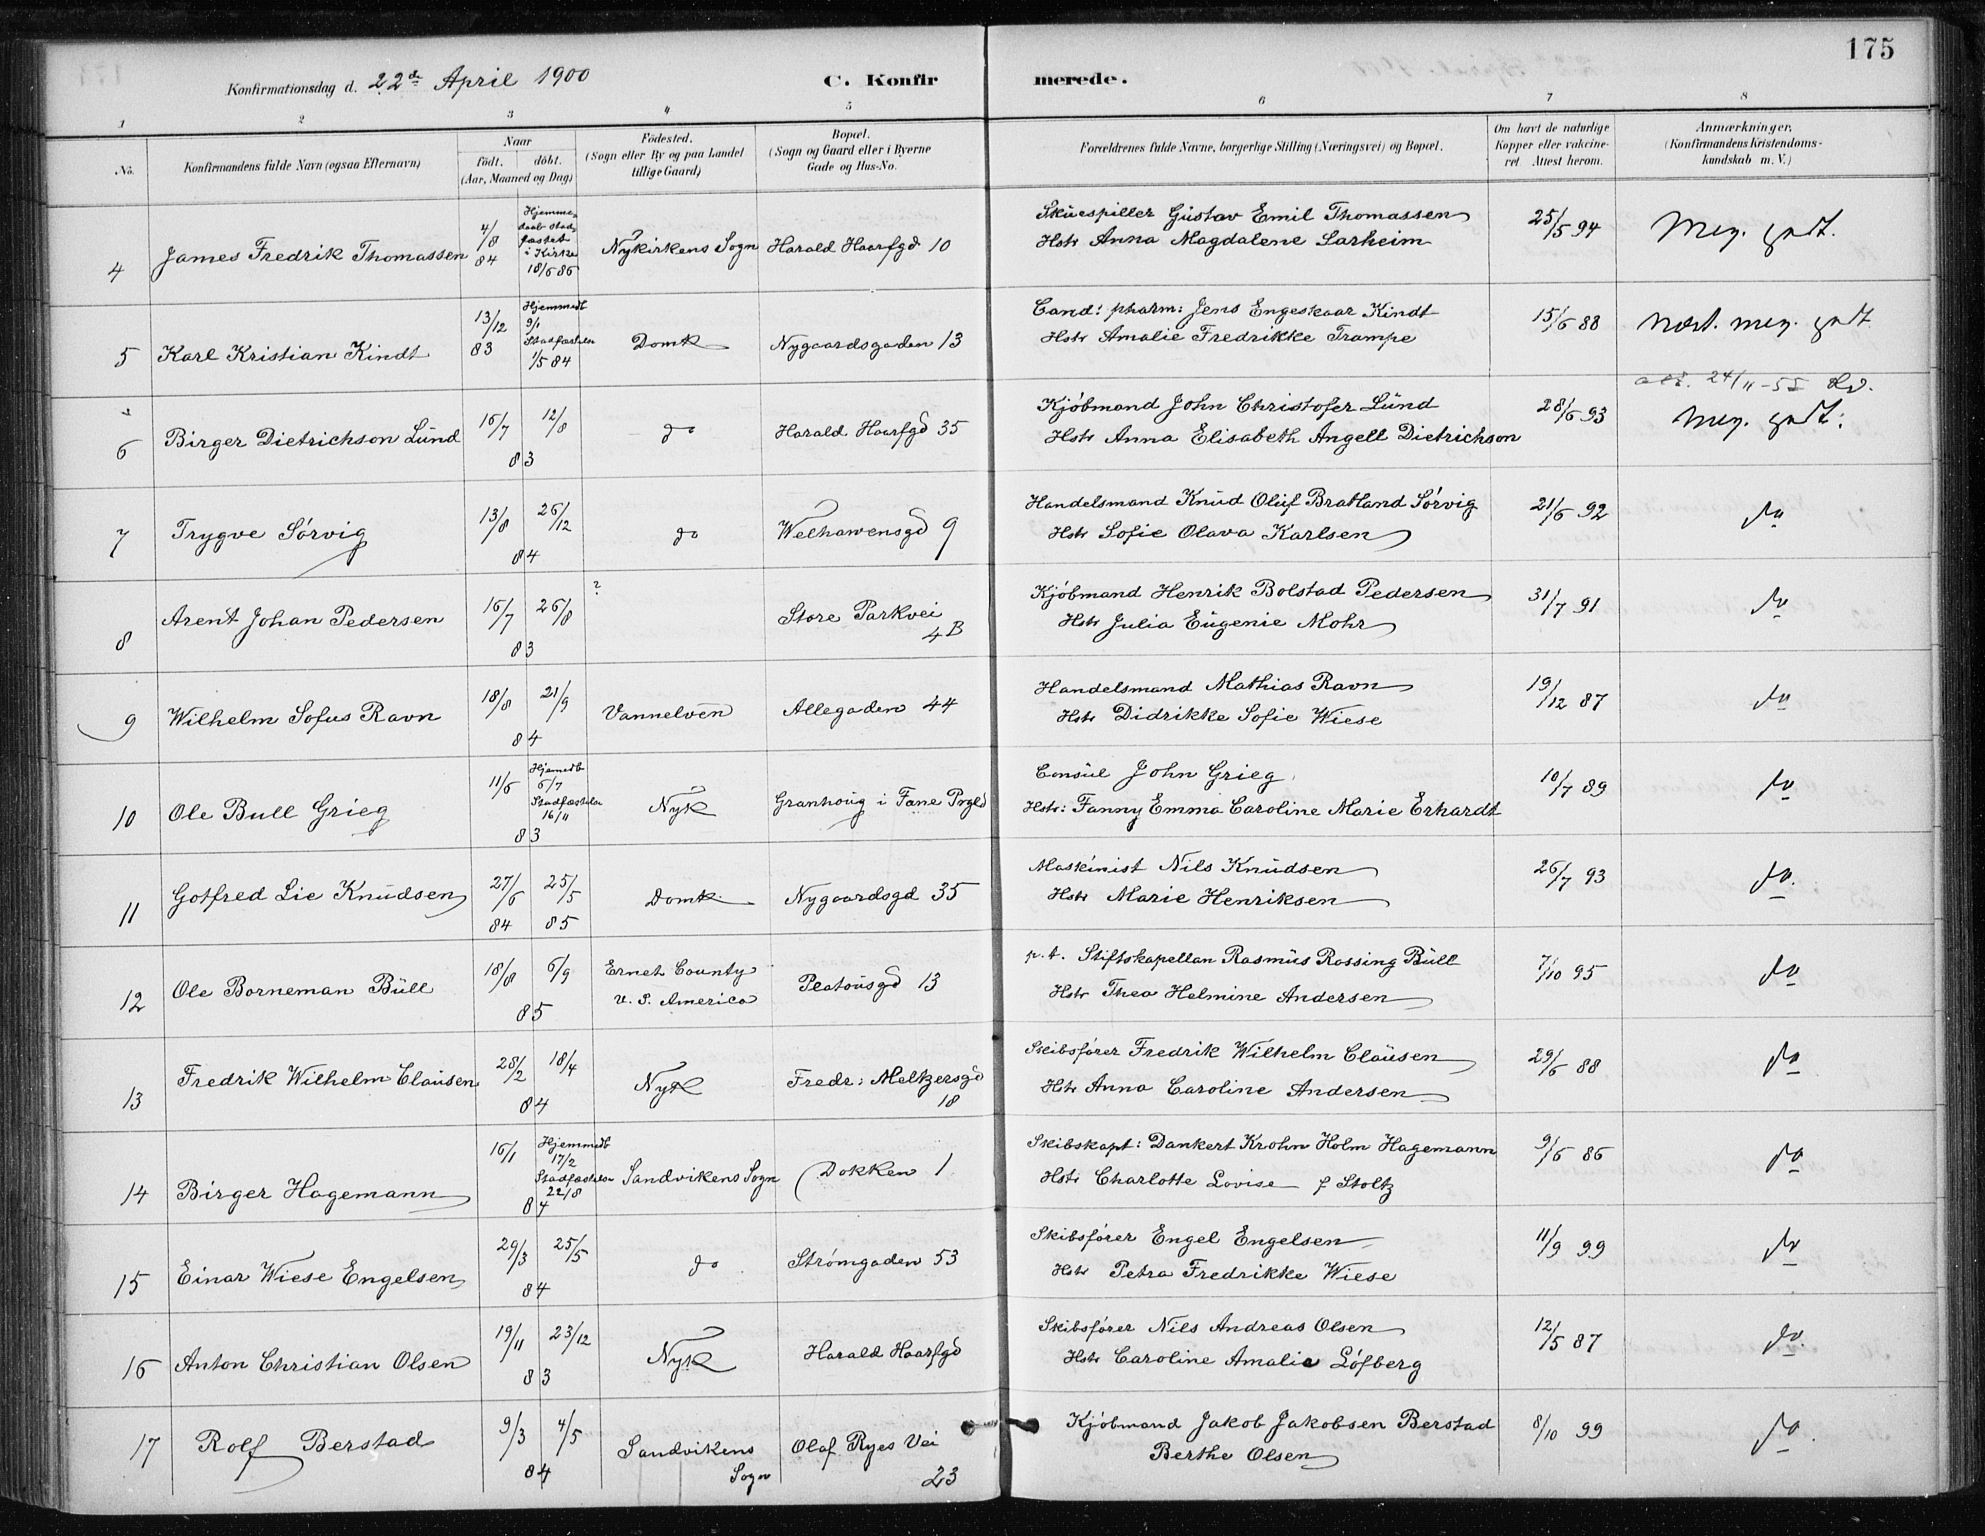 175
Konfirmationsdag d. 22de April 1900 C. Konfirmerede.
1 2 3 4 5 6 7 8
No. Konfirmandens fulde Navn (ogsaa Efternavn) Naar født. døbt. (Aar, Maaned og Dag) Fødested. (Sogn eller By og paa Landet tillige Gaard) Bopæl. (Sogn og Gaard eller i Byerne Gade og Hus-No. Forældrenes fulde Navne, borgerlige Stilling (Næringsvei) og Bopæl. Om havt de naturlige Kopper eller vakcineret. Attest herom. Anmærkninger. (Konfirmandens Kristendomskundskab m. V.)
4 James Fredrik Thomassen 4/8 84 Hjemmedøbt stadfæstet i Kirke 18/6 86 Nykirkens Sogn Harald Haarfgd 10 Skuespiller Gustav Emil Thomassen
Hstr Anna Magdalene Sarheim 25/5 94 Meg. godt.
5 Karl Kristian Kindt 13/12 83 Hjemmedb 9/1 Stadfæstelse 1/5 84 Domk Nygaardsgaden 13 Cand: pharm: Jens Engeskaar Kindt
Hstr Amalie Fredrikke Trampe 15/6 88 Næst. meg. godt
att. 24/11-55
6 Birger Dietrichson Lund 16/7 12/8 83 do Harald Haarfgd 35 Kjøbmand John Christofer Lund
Hstr Anna Elisabeth Angell Dietrichson 28/6 93 Meg. godt.
7 Trygve Sørvig 13/8 26/12 84 do Welhavensgd 9 Handelsmand Knud Oluf Bratland Sørvig
Hstr Sofie Olava Karlsen 21/6 92 do
8 Arent Johan Pedersen 16/7 26/8 83 ? Store Parkvei 4B Kjøbmand Henrik Bolstad Pedersen
Hstr Julia Eugenie Mohr 31/7 91 do
9 Wilhelm Sofus Ravn 18/8 21/9 84 Vannelven Allegaden 44 Handelsmand Mathias Ravn
Hstr Didrikke Sofie Wiese 19/12 87 do
10 Ole Bull Grieg 11/6 Hjemedb 6/7 Stadfæstelse 16/11 83 Nyk Granhoug i Fane Prgld Consul John Grieg
Hstr: Fanny Emma Caroline Marie Erhardt 10/7 89 do
11 Gotfred Lie Knudsen 27/6 84 25/5 85 Domk. Nygaardsgd 35 Maskinist Nils Knudsen
Hstr Marie Henriksen 26/7 93 do.
12 Ole Borneman Bull 18/8 6/9 85 Ernet County U. S. America Platousgd 13 p.t. Stiftskapellan Rasmus Rossing Bull
Hstr Thea Helmine Andersen 7/10 95 do
13 Fredrik Wilhelm Clausen 28/2 18/4 84 Nyk Fredr: Meltzersgd 18 Skibsfører Fredrik Wilhelm Clausen
Hstr Anna Caroline Andersen 29/6 88 do
14 Birger Hagemann 16/1 Hjemmedb 17/2 Stadfæstelse 22/8 84 Sandvikens Sogn Dokken 1 Skibskapt: Dankert Krohn Holm Hagemann
Hstr Charlotte Lovise f Stoltz 9/6 86 do
15 Einar Wiese Engelsen 29/3 25/5 84 do Strømgaden 53 Skibsfører Engel Engelsen
Hstr Petra Fredrikke Wiese 11/9 99 do
16 Anton Christian Olsen 19/11 23/12 83 Nyk Harald Haarfgd Skibsfører Nils Andreas Olsen
Hstr Caroline Amalie Løfberg 12/5 87 do.
17 Rolf Berstad 9/3 4/5 84 Sandvikens Sogn Olaf Ryes Vei 23 Kjøbmand Jakob Jakobsen Berstad
Berthe Olsen 8/10 99 do.